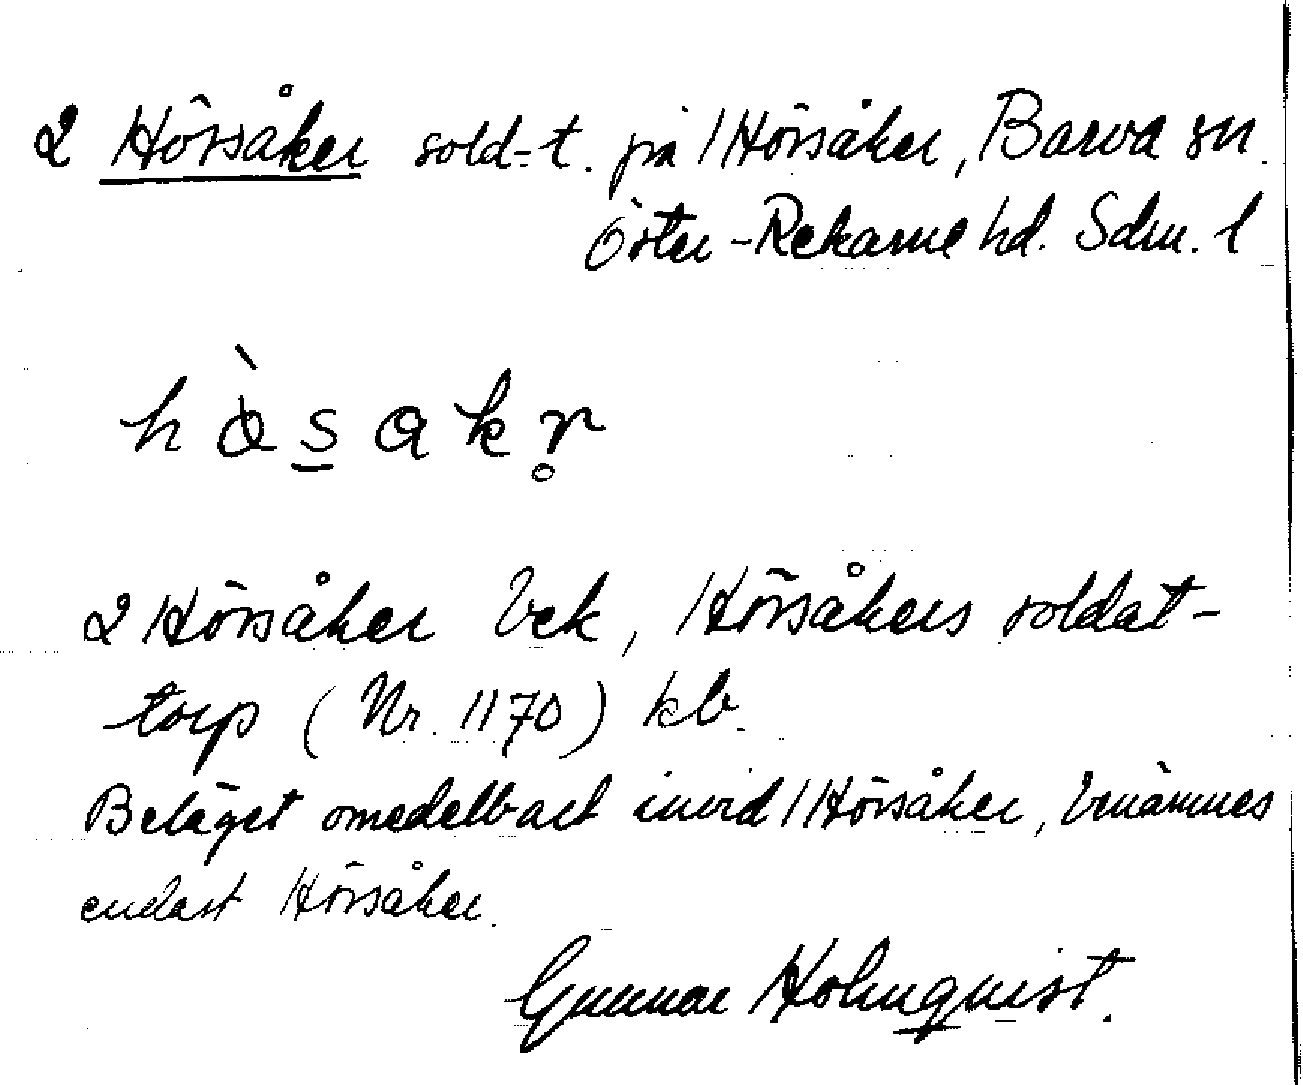 2 Hörsåker sold-t. på 1 Hörsåker, Barva sn.
Öster-Rekarne hd. Sdm. l
2 Hörsåker Bek, Hörsåkers soldat-
torp (Nr. 1170) kb.
Beläget omedelbart invid 1 Hörsåker, benämnes
endast Hörsåker.
Gunnar Holmquist.